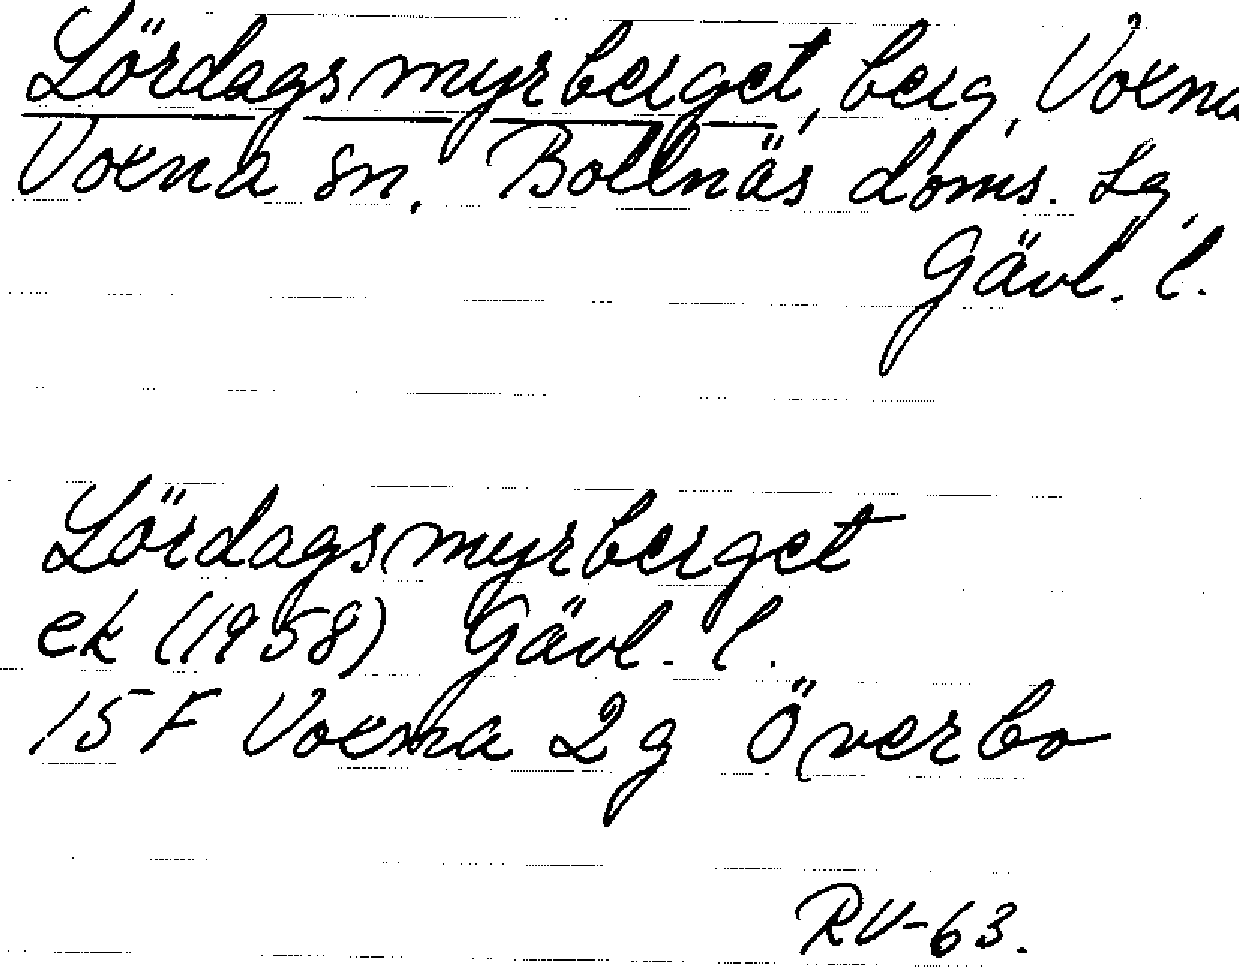 Lördagsmyrberget, berg, Voxna
Voxna sn, Bollnäs doms. lg,
Gävl. l.
Lördagsmyrberget
ek (1958) Gävl. l.
15 F Voxna 2 g Överbo
RV-63.